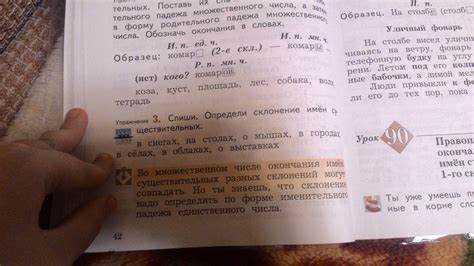 тельных. Поставь их сна
тельного падежа множественного числа, а зате
в форму родительного падежа множественног
числа. Обозначь окончания в словах.
И. п. ед. ч. И. п. мн. ч.
Образец: комар (2-е скл.) — комар
Р. п. мн. ч.
(нет) кого? комаров
коза, куст, площадь, лес, собака, вол
тетрадь
Упражнение 3. Спиши. Определи склонение имён су
ществительных.
в снегах, на столах, о мышах, в городах
в сёлах, в облаках, о выставках
Во множественном числе окончания имён
существительных разных склонений могут
совпадать. Но ты знаешь, что склонение
надо определять по форме именительного
падежа единственного числа.
42
П. п.
Образец. На столбе (столб
Уличный фонарь
На столбе висел уличн
чиваясь на ветру, фонарь
телефонную будку на углу
рени. Летом под его
ные бабочки, а зимой мел
Люди привыкли к
ли его до тех пор, пока
Урок 90
Правоп
оконча
имен
1-го ск
Ты уже умеешь п
ные в корне сло